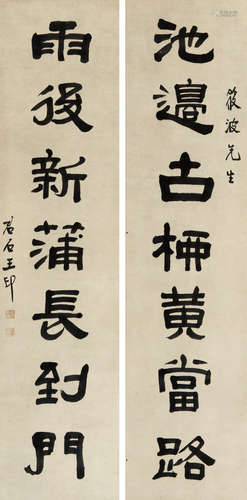 筱波先生
池邊古桺黃當路
雨後新蒲長到門
君石王